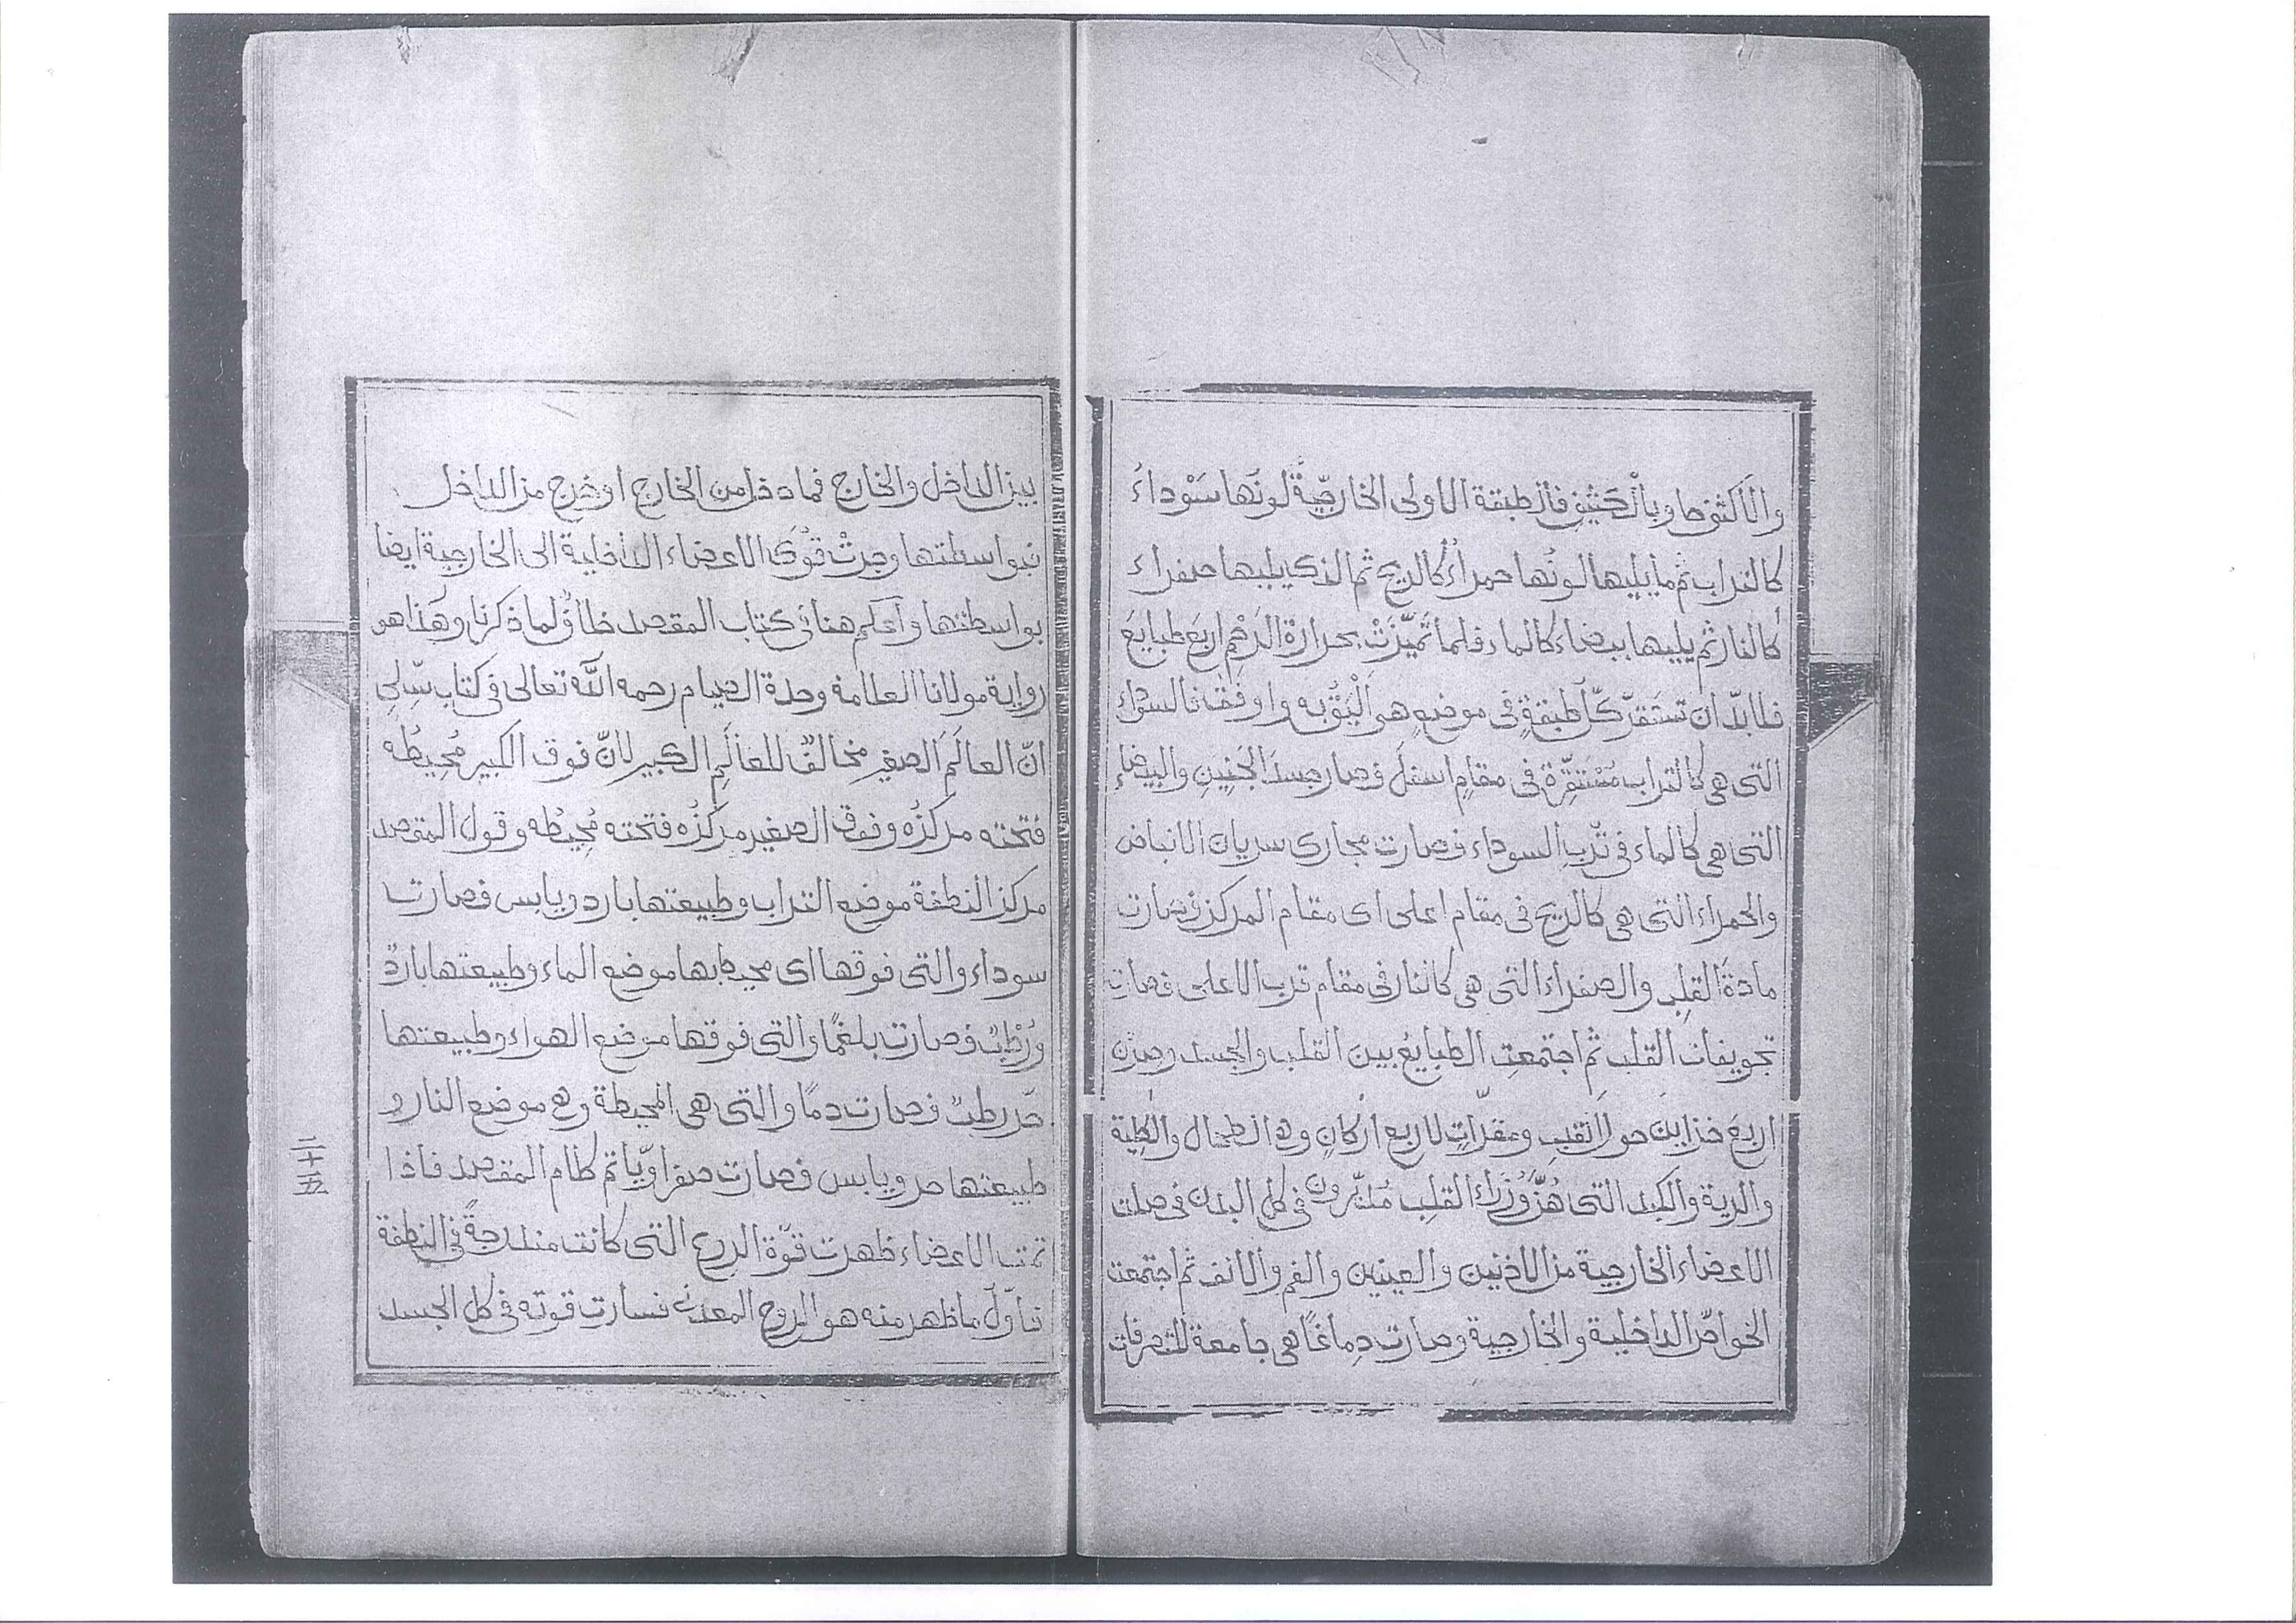 والأكثف حاو بالكثيف فأن طبقة الاولى الخارجيّة لونها سَوْداءُ
كالتراب ثم ما يليها لونُها حمراءُ كالريح ثم الذى يليها صفراء
كالنار ثم يليها بيضاء كالماء فلما تميّزَتْ بحرارة الرَحِم اربع طبايعَ
فلابدّ ان تستقرّ كلّ طبقةٍ فى موضعٍ هى اليق به واوفق فالسوداء
التى هى كالتراب مُسْتَقِرّة فى مقامٍ اسفل فصار جسدَ الجَنِينِ والبيضاء
التى هى كالماء فى قرب السوداء فصارت مجارى سريان الانباض
والحمراء التى هى كالريح فى مقام اعلى اى مقام المركز فصارت
مادةَ القلبِ والصفراء التى هى كالنار فى مقام قرب الاعلى فصارت
تجويفات القلب ثم اجتمعتِ الطبايعُ بين القلب والجسد وصِرْن
اربعَ خزاين حول القلب ومقرّاتٍ لاربع اركانٍ وهى الطحال والكلية
والرية والكبد التى هُنّ وُزَراءُ القلبِ مُدَبِّرون فى كل البدن فحصلت
الاعضاء الخارجية من الاذنين والعينين والفم والانف ثم اجتمعت
الخواصّ الداخلية والخارجية وصارت دِماغًا هى جامعة للتصرفات
بين الداخل والخارج فما دخل من الخارج او خرج من الداخل
فبواسطتها وجرتْ قُوَى الاعضاء الداخلية الى الخارجية ايضا
بواسطتها واعلم هنا فى كتاب المقصد خلافٌ لما ذكرنا وهَذا هو
رواية مولانا العلامة وحدة الصيام رحمه اللّٰه تعالى فى كتاب
انّ العالَمَ الصغير مخالفٌ للعالَمِ الكبير لانّ فوق الكبير مُحِيطُه
فتحته مركزُه وفوق الصغير مركزُه فتحته مُحِيطُه وقول المقصد
مركز النطفة موضع التراب وطبيعتها بارد ويابس فصارت
سوداء والتى فوقها اى محيط بها موضع الماء وطبيعتها باردٌ
ورُطْبٌ فصارت بلغمًا والتى فوقها موضع الهواء وطبيعتها
حَر رطبٌ فصارت دمًا والتى هى المحيطة وهى موضع النار و
طبيعتها حر ويابس فصارت صفراويًّا تم كلام المقصد فاذا
تمت الاعضاء ظهرت قوّة الروح التى كانت مندرجةً فى النطفة
فاوّل ما ظهر منه هو الروح المعدنى فسارت قوته فى كل الجسد